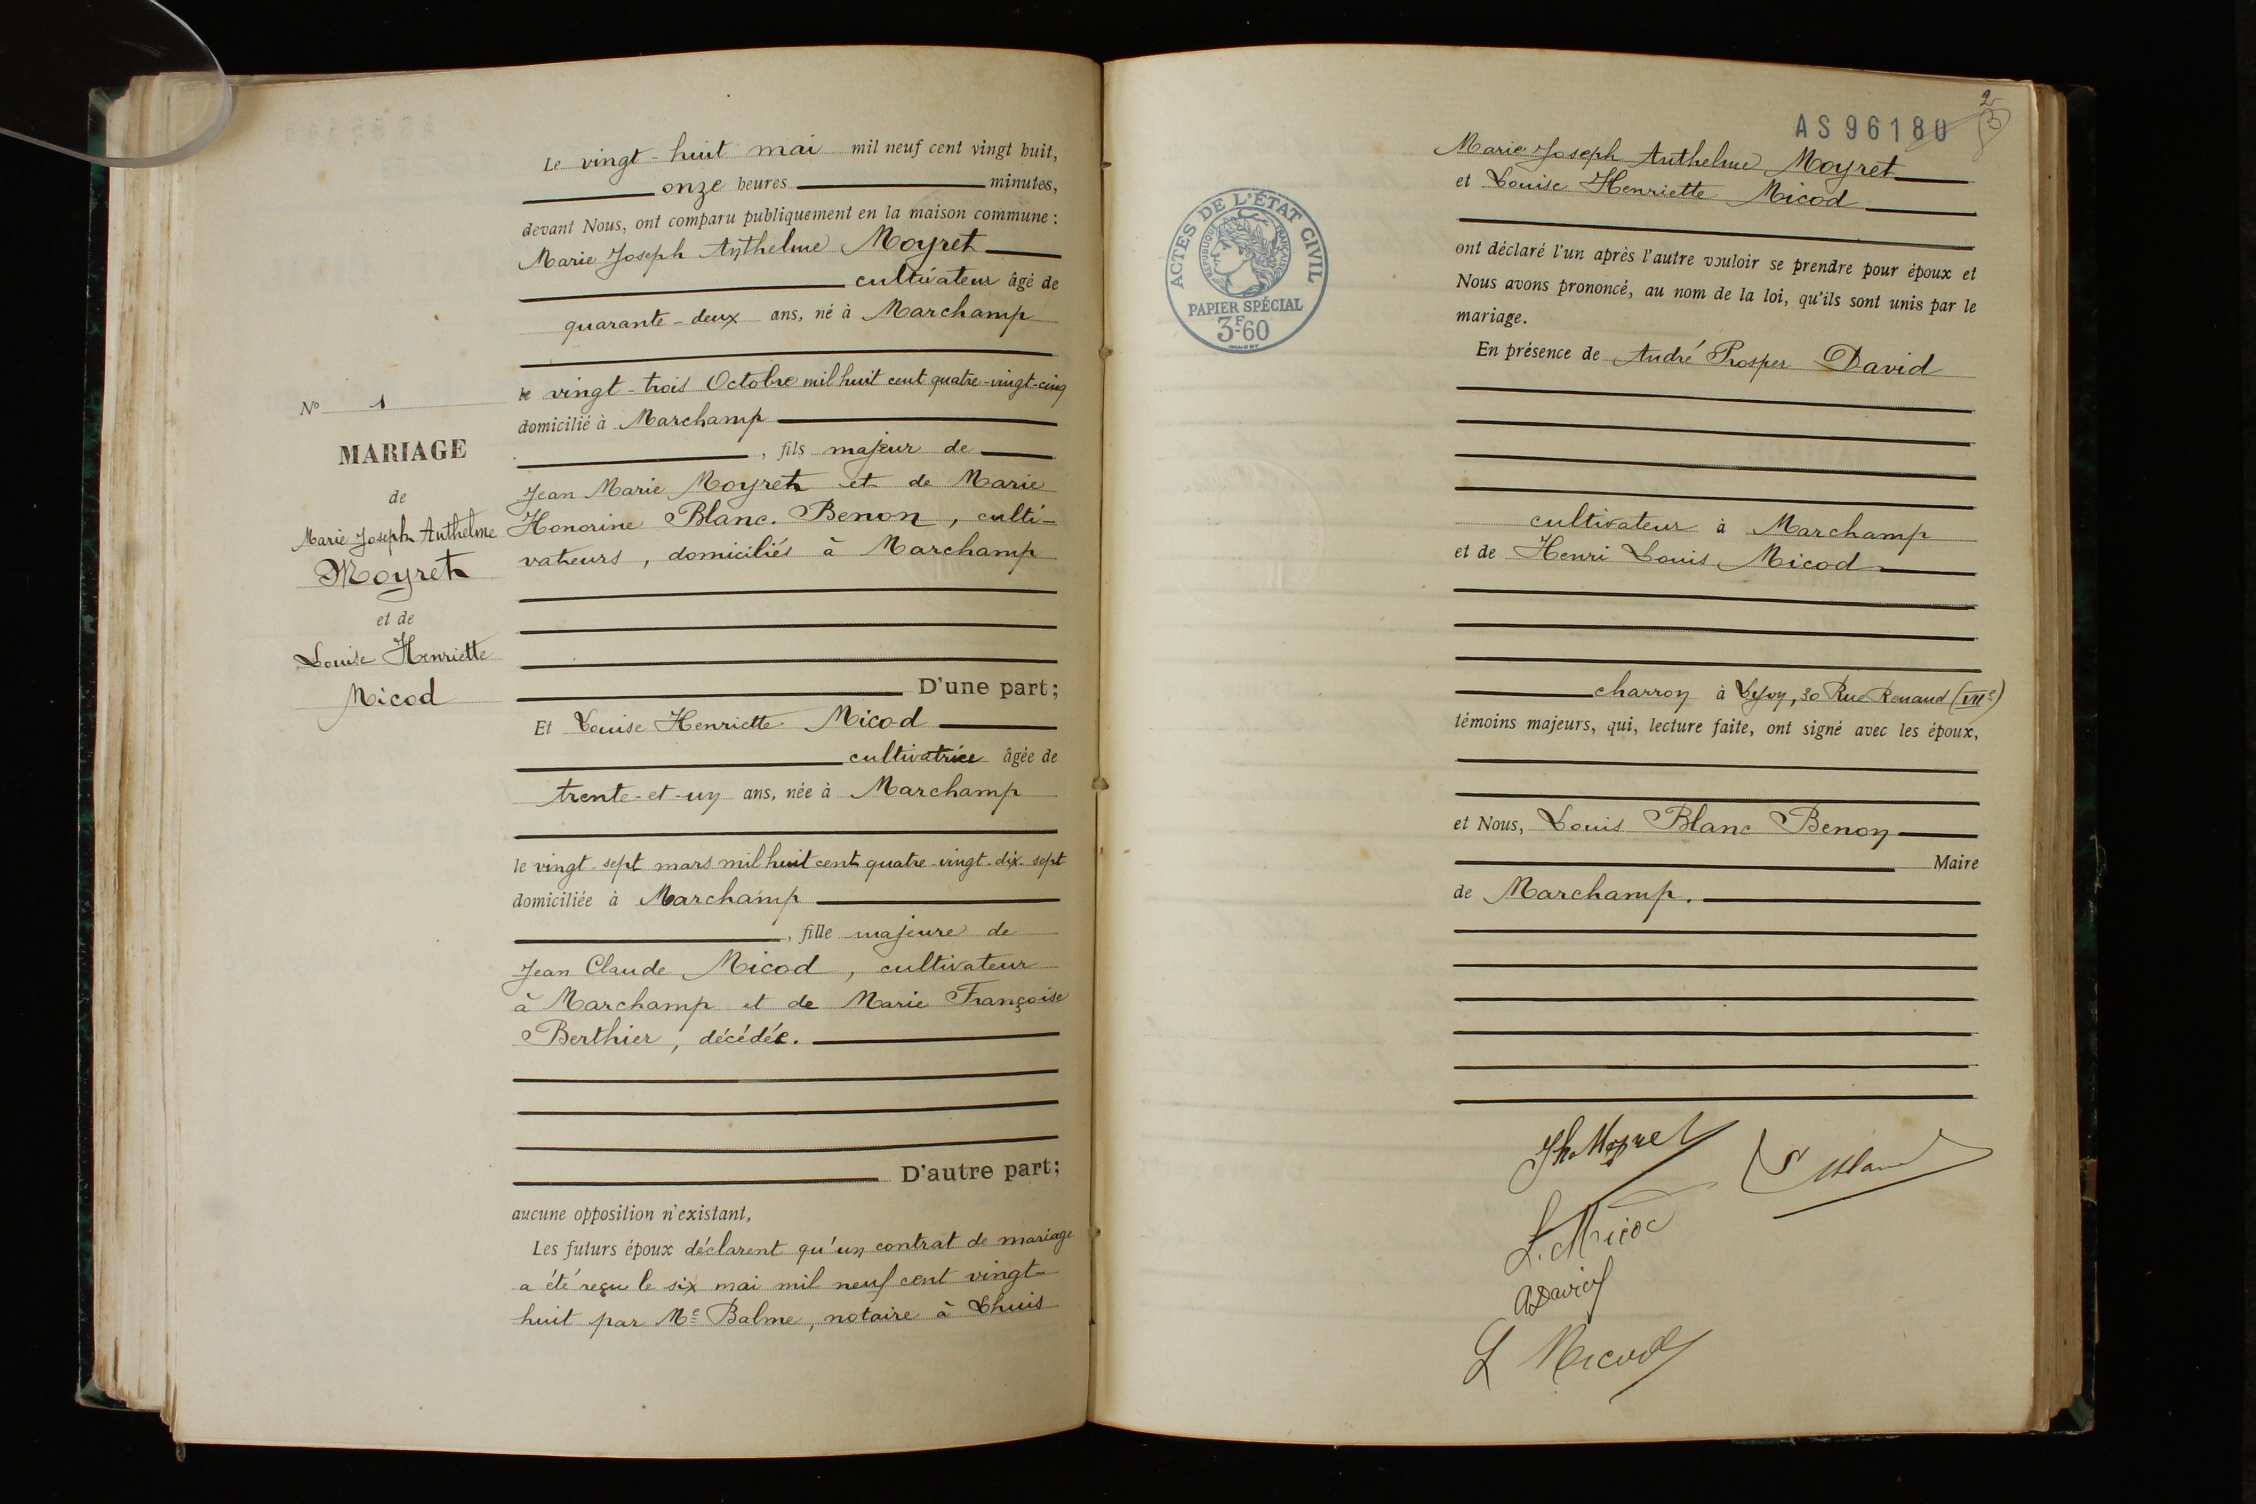 Le vingt-huit mai mil neuf cent vingt huit,
onze heures minutes,
devant Nous, ont comparu publiquement en la maison commune :
Marie Joseph Anthelme Moyret
cultivateur âgé de
quarante-deux ans, né à Marchamp
le vingt-trois Octobre mil huit cent quatre-vingt-cinq
domicilié à Marchamp
, fils majeur de
Jean Marie Moyret et de Marie
Honorine Blanc-Benon, culti-
vateurs, domiciliés à Marchamp
D'une part;
Et Louise Henriette Micod
cultivatrice âgée de
trente-et-un ans, née à Marchamp
le vingt-sept mars mil huit cent quatre-vingt-dix-sept
domiciliée à Marchamp
, fille majeure de
Jean Claude Micod, cultivateur
à Marchamp et de Marie Françoise
Berthier, décédée.
D'autre part;
aucune opposition n'existant,
Les futurs époux déclarent qu'un contrat de mariage
a été reçu le six mai mil neuf cent vingt
huit par Me Balme, notaire à Lhuis
No 1
MARIAGE
de
Marie Joseph Anthelme
Moyret
et de
Louise Henriette
Micod
AS 96180
2
3
ACTES DE L'ÉTAT CIVIL
RÉPUBLIQUE FRANÇAISE
PAPIER SPÉCIAL
3F60
Marie Joseph Anthelme Moyret
et Louise Henriette Micod
ont déclaré l'un après l'autre vouloir se prendre pour époux et
Nous avons prononcé, au nom de la loi, qu'ils sont unis par le
mariage.
En présence de André Prosper David
cultivateur à Marchamp
et de Henri Louis Micod
charron à Lyon, 30 Rue Renaud (VIIe)
témoins majeurs, qui, lecture faite, ont signé avec les époux,
et Nous, Louis Blanc Benon
Maire
de Marchamp.
Jh Moyret
L. Micod
A David
L Micod